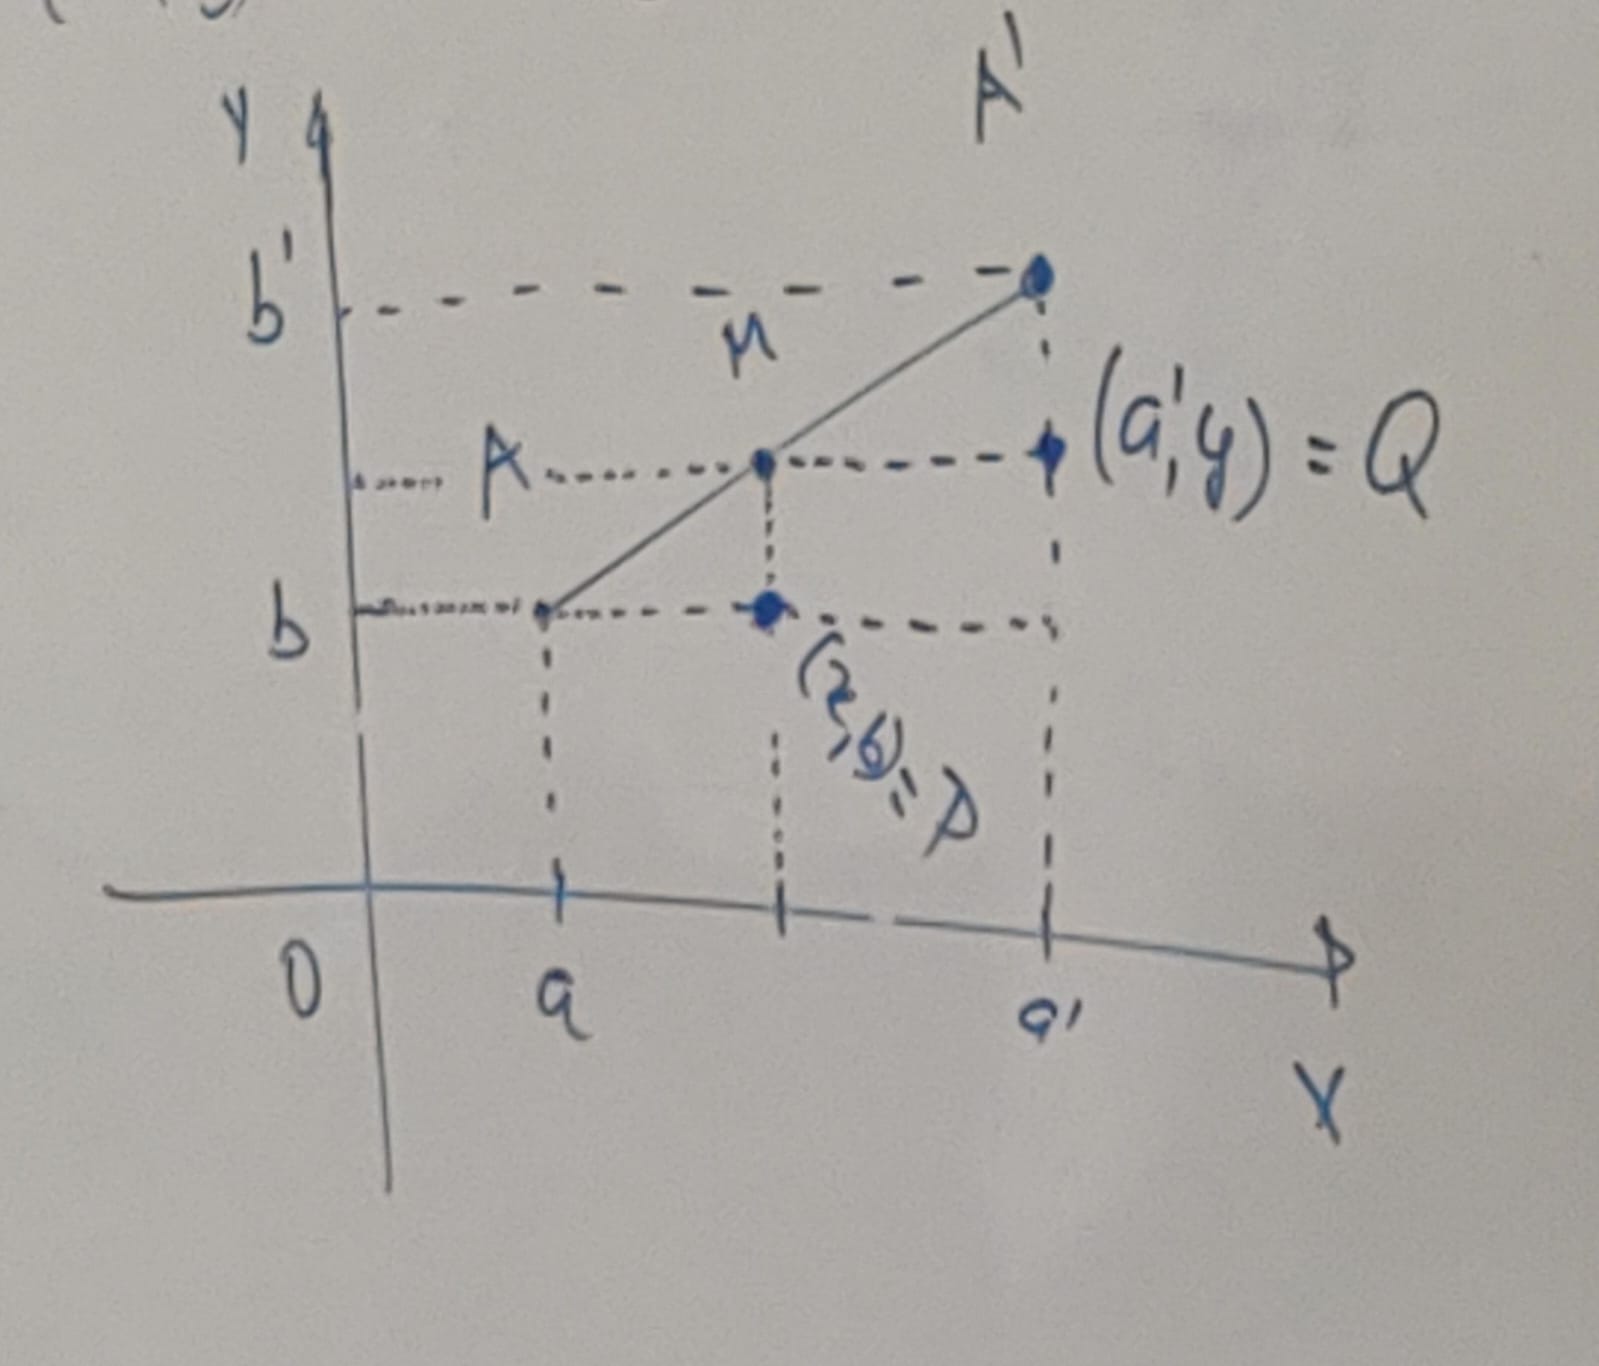 A'
Y
b'
M
A
(a', y) = Q
b
(x, b) = P
O
a
a'
X